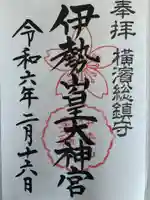 奉拝 横濱総鎮守
伊勢山皇大神宮
令和六年二月十六日